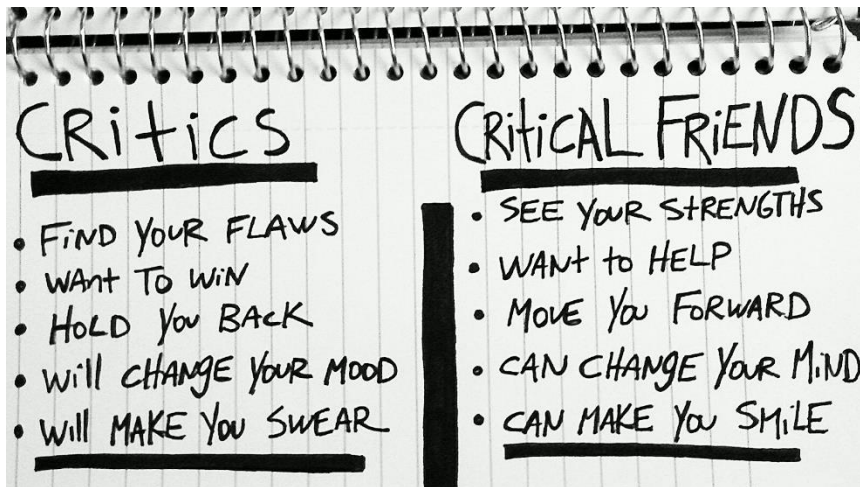 CRitiCS
• FiND YOUR FLAWS
• WAnt TO WiN
• HOLD YOU BACK
• Will CHANGE YOUR MOOD
• Will MAKE YOU SWEAR
CRitiCAL FRiENDS
• SEE YOUR StRENGTHS
• WANt to HELP
• MOVE YOU FORWARD
• CAN CHANGE YOUR MiND
• CAN MAKE YOU SMiLE